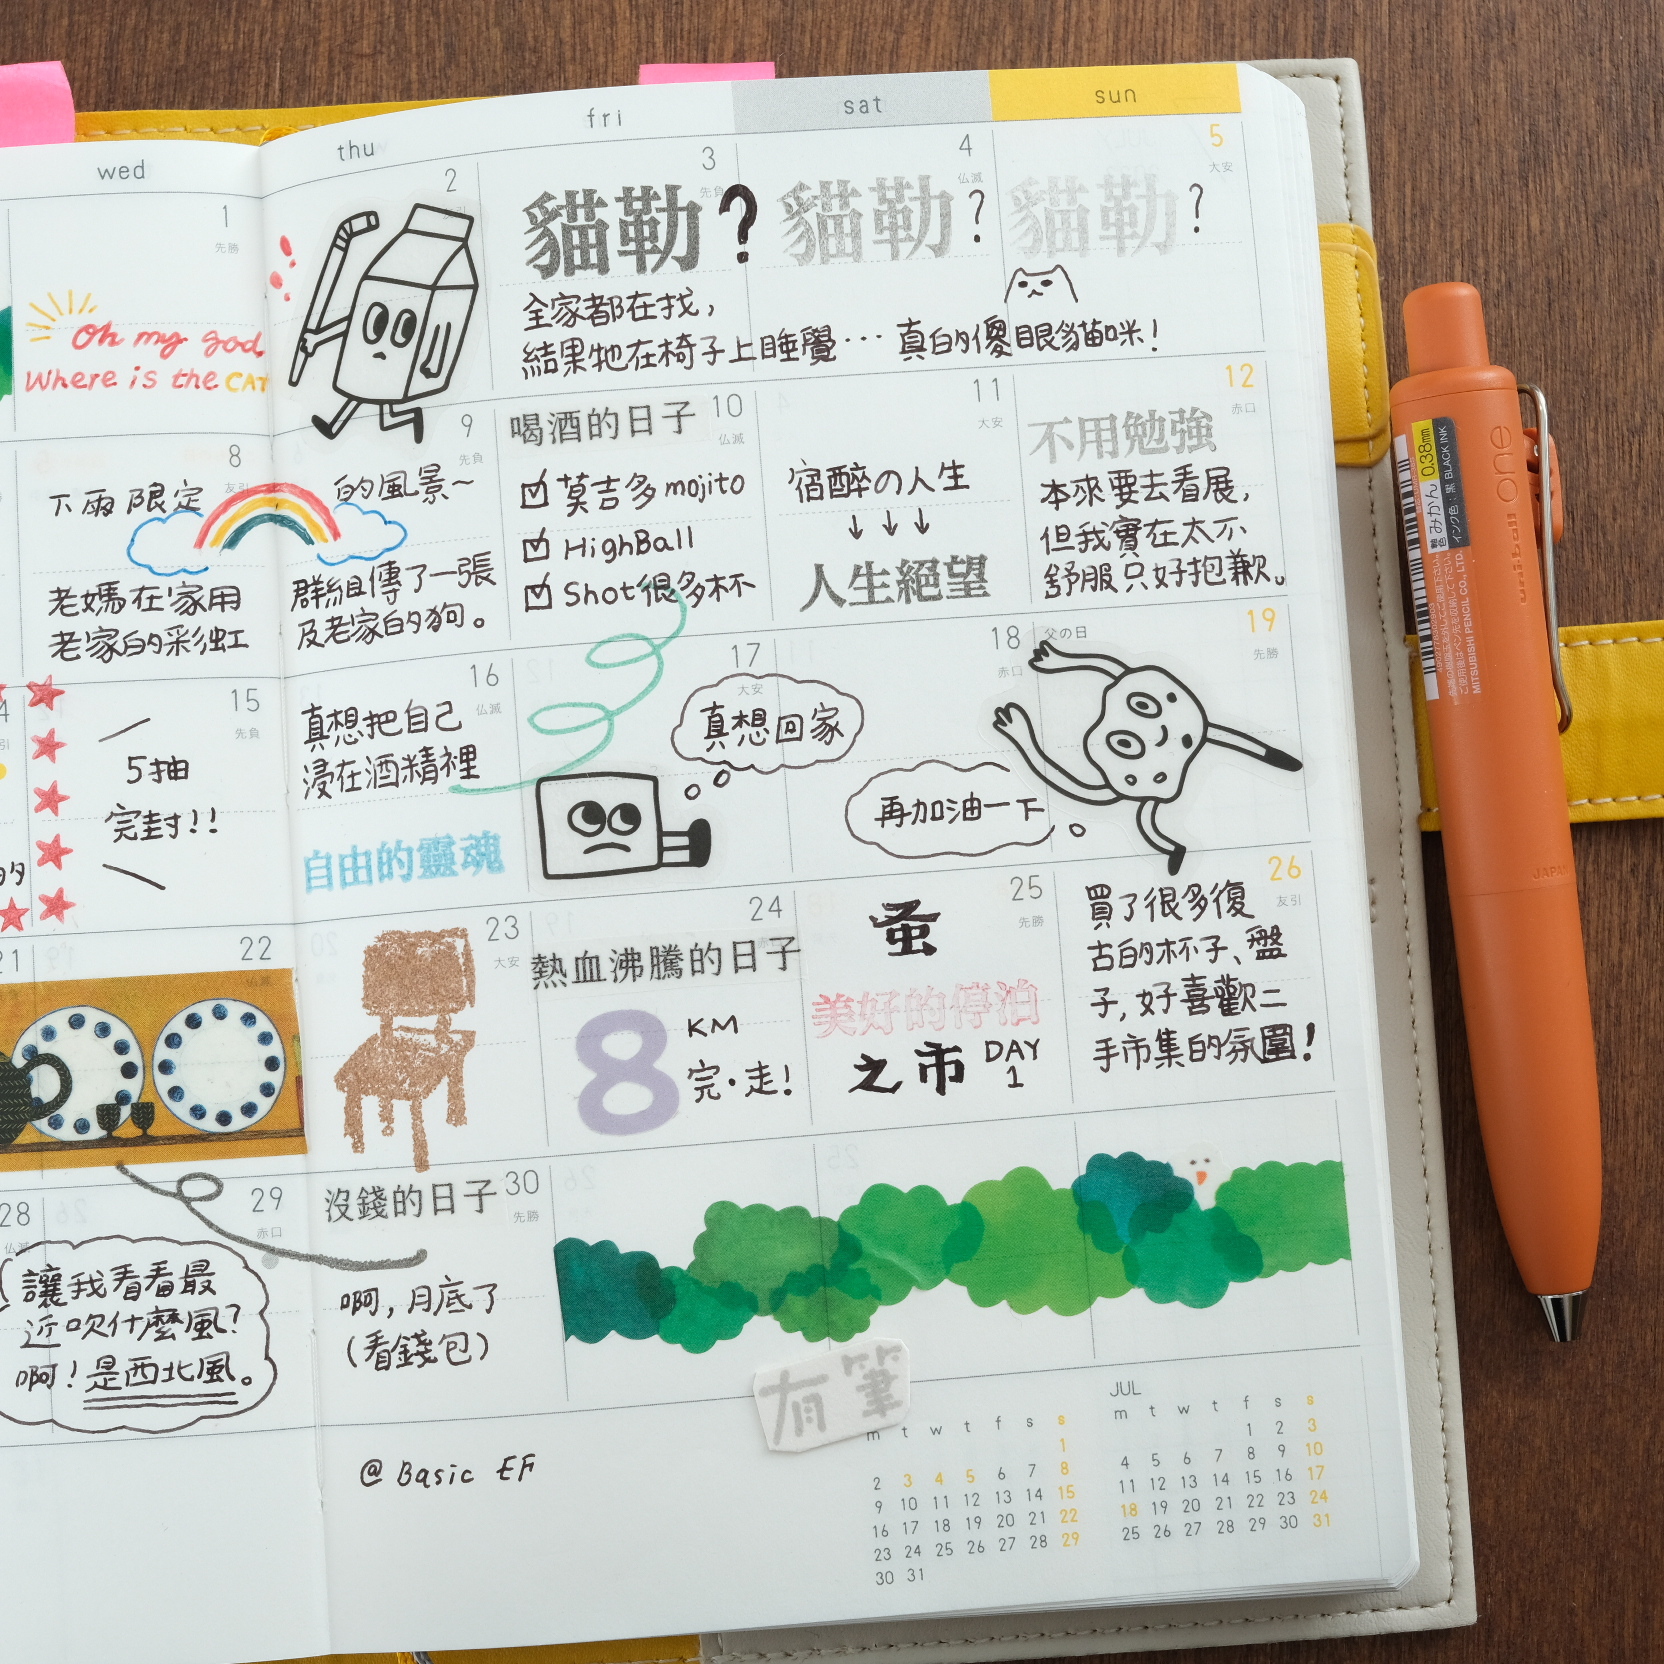 wed
thu
fri
sat
sun
1
先勝
Oh my god,
Where is the CAT
2
3
先負
貓勒?
4
仏滅
貓勒?
5
大安
貓勒?
全家都在找,
結果牠在椅子上睡覺… 真的傻眼貓咪!
8
友引
下雨限定
老媽在家用
老家的彩虹
9
先負
的風景~
群組傳了一張
及老家的狗。
10
仏滅
喝酒的日子
莫吉多 mojito
HighBall
Shot很多杯
11
大安
宿醉の人生
↓↓↓
人生絕望
12
赤口
不用勉強
本來要去看展,
但我實在太不
舒服只好抱歉。
15
先負
5抽
完封!!
16
仏滅
真想把自己
浸在酒精裡
自由的靈魂
17
大安
真想回家
18
赤口
再加油一下
父の日
19
先勝
21
22
23
大安
24
熱血沸騰的日子
8
KM
完·走!
25
先勝
蚤
美好的停泊
之市 DAY
1
26
友引
買了很多復
古的杯子、盤
子,好喜歡二
手市集的氛圍!
28
仏滅
29
赤口
讓我看看最
近吹什麼風?
啊!是西北風。
30
先勝
沒錢的日子
啊,月底了
(看錢包)
有筆
@ Basic EF
m t w t f s s
1
2 3 4 5 6 7 8
9 10 11 12 13 14 15
16 17 18 19 20 21 22
23 24 25 26 27 28 29
30 31
JUL
m t w t f s s
1 2 3
4 5 6 7 8 9 10
11 12 13 14 15 16 17
18 19 20 21 22 23 24
25 26 27 28 29 30 31
uni-ball one
みかん 0.38mm
インク色:黒 BLACK INK
MITSUBISHI PENCIL CO., LTD.
JAPAN